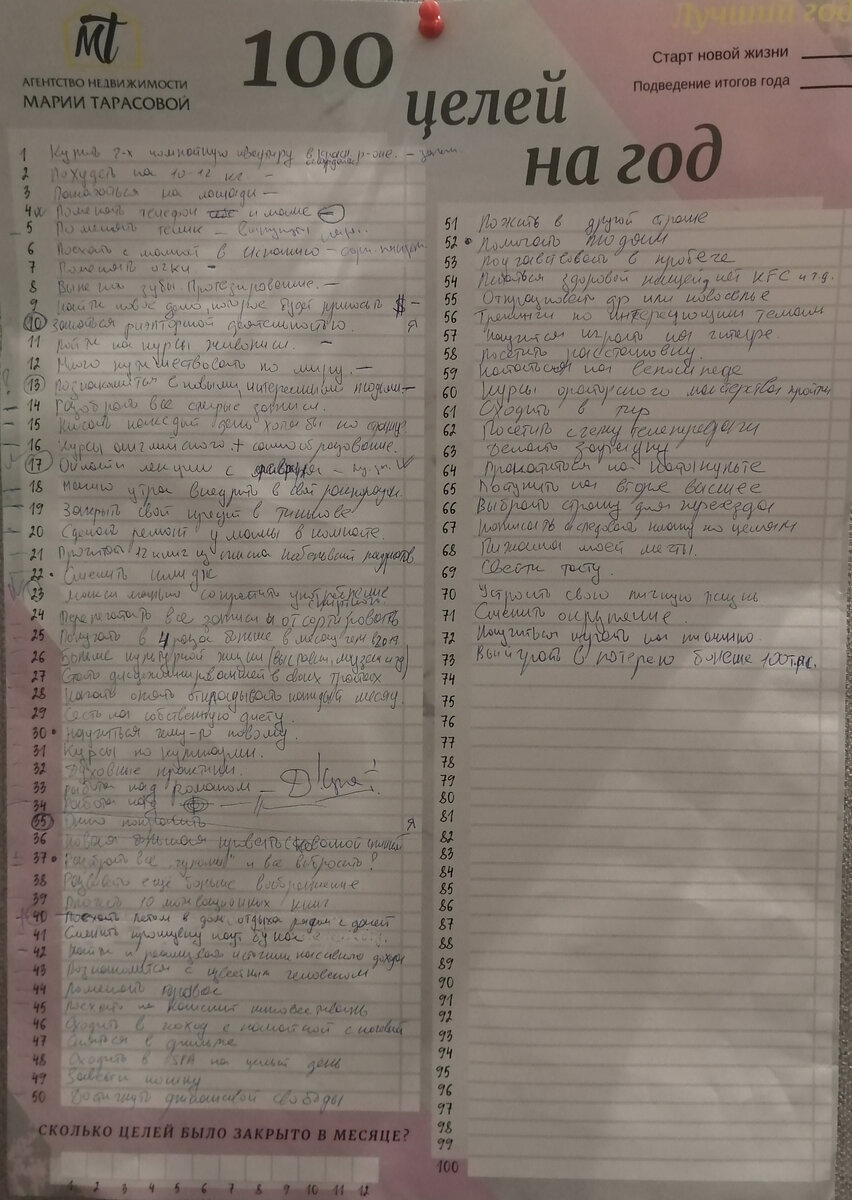 Лучший год
МТ
АГЕНТСТВО НЕДВИЖИМОСТИ
МАРИИ ТАРАСОВОЙ
100
целей
на год
Старт новой жизни
Подведение итогов года
1 Купить 2-х комнатную квартиру в
2 Похудеть на 10-12 кг. -
3 Покататься на лошади -
4 Поменять телефон и маме
5 Поменять технику
6 Поехать с мамой в Испанию
7 Поменять очки -
8 Вылечить зубы. Протезирование. -
9 Найти новое дело, которое будет приносить $ -
10 Заняться риэлторской деятельностью. Я
11 Пойти на курсы живописи. -
12 Много путешествовать по миру. -
13 Познакомиться с новыми, интересными людьми. -
14 Разобрать все старые записи.
15 Писать каждый день хотя бы по странице
16 Курсы английского + самообразование.
17 Онлайн лекции с
18 Магию утра внедрить в свой распорядок.
19 Закрыть свой кредит в Тинькове
20 Сделать ремонт у мамы в комнате.
21 Прочитать 12 книг из списка
22 Сменить имидж
23 Максимально сократить употребление
24 Перечитать все записи и отсортировать
25 Получать в 4 раза больше в месяц чем в 2019
26 Больше культурной жизни (выставки, музеи и тд)
27 Стать дисциплинированней в своих
28 Начать опять откладывать каждый месяц.
29 Сесть на собственную диету.
30 Научиться чему-то новому.
31 Курсы по кулинарии.
32 Духовные практики.
33 Работа над романом
34 Работа над
35 Я
36
37 Разобрать все и все выбросить!
38 Развивать ещё больше воображение
39 10 мотивационных книг
40 Поехать летом в дом отдыха рядом с дачей
41 Сменить причёску
42 Найти и реализовать источник пассивного дохода
43 Познакомиться с известным человеком
44 Поменять
45 Поехать на
46 Сходить в поход с палаткой с ночевкой
47 Сняться в фильме
48 Сходить в SPA на целый день
49 Завести кошку
50 Достигнуть финансовой свободы
СКОЛЬКО ЦЕЛЕЙ БЫЛО ЗАКРЫТО В МЕСЯЦЕ?
1 2 3 4 5 6 7 8 9 10 11 12
51 Пожить в другой стране
52 Помогать людям
53 Поучаствовать в пробеге
54 Питаться здоровой пищей, нет KFC и т.д.
55 Отпраздновать др или новоселье
56 Тренинги по интересующим темам
57 Научиться играть на гитаре.
58 Посетить расстановку.
59 Кататься на велосипеде
60 Курсы ораторского мастерства пройти
61 Сходить в тир
62 Посетить съемку телепередачи
63 Делать зарядку
64 Прокатиться на
65 Поступить на второе высшее
66 Выбрать страну для переезда
67 Написать и следовать плану по целям
68 Пижама моей мечты.
69 Свести тату.
70 Устроить свою личную жизнь
71 Сменить окружение.
72 Научиться играть на пианино.
73 Выиграть в лотерею больше 100 т.р.
74
75
76
77
78
79
80
81
82
83
84
85
86
87
88
89
90
91
92
93
94
95
96
97
98
99
100